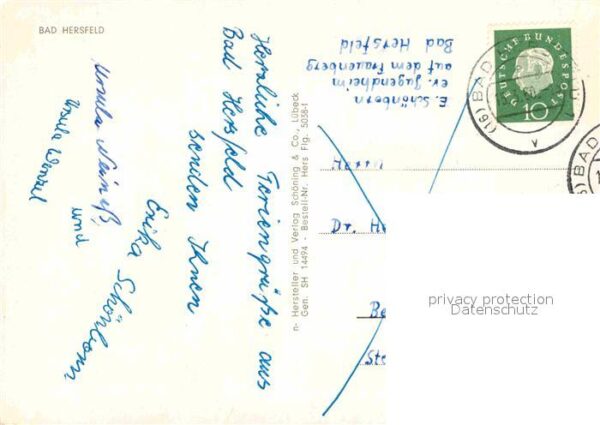 BAD HERSFELD
Herzliche Feriengrüße aus
Bad Hersfeld
senden Ihnen
Erika Schönborn
und
Ursula
Ursula
n- Hersteller und Verlag Schöning & Co., Lübeck
Gen. SH 14494 - Bestell-Nr. Hers Flg. 5058-1
E. Schönborn
ev. Jugendheim
auf dem Frauenberg
Bad Hersfeld
DEUTSCHE BUNDESPOST
10
(16) BAD
v
BAD
Dr. He
Be
privacy protection
Datenschutz